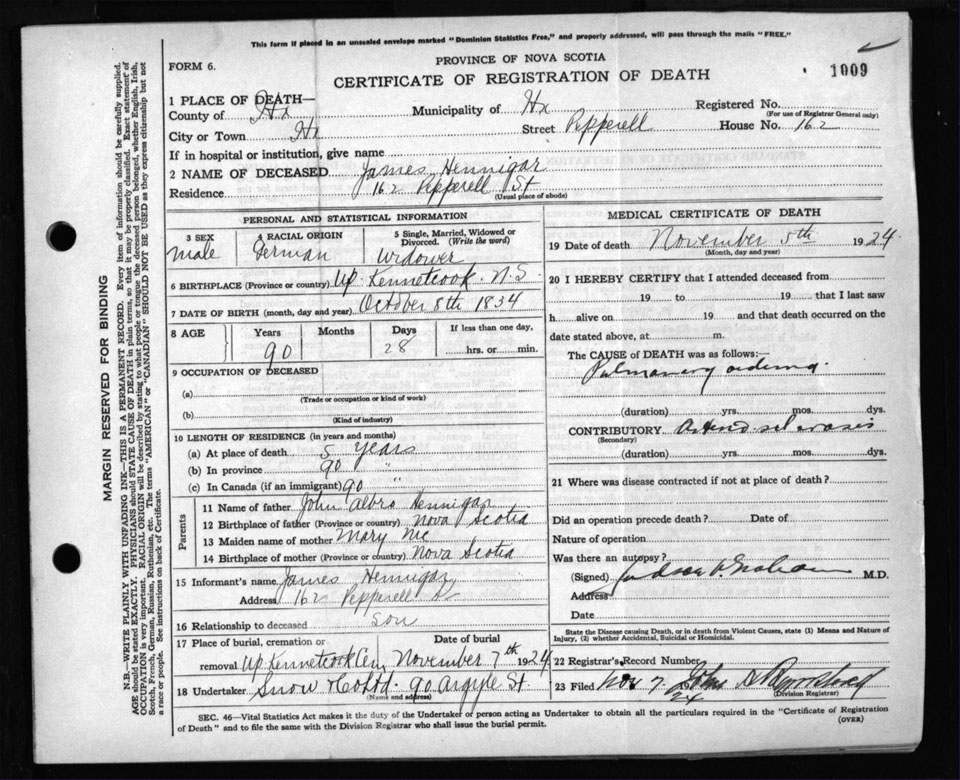 This form if placed in an unsealed envelope marked "Dominion Statistics Free," and properly addressed, will pass through the mails "FREE."
FORM 6.
PROVINCE OF NOVA SCOTIA
CERTIFICATE OF REGISTRATION OF DEATH
1009
1 PLACE OF DEATH—
County of Hx Municipality of Hx Registered No.
(For use of Registrar General only)
City or Town Hx Street Pepperell House No. 162
If in hospital or institution, give name
2 NAME OF DECEASED James Hennigar
Residence 162 Pepperell St
(Usual place of abode)
PERSONAL AND STATISTICAL INFORMATION
3 SEX 4 RACIAL ORIGIN 5 Single, Married, Widowed or Divorced. (Write the word)
Male German Widower
6 BIRTHPLACE (Province or country) Up. Kennetcook. N.S.
7 DATE OF BIRTH (month, day and year) October 8th 1834
8 AGE Years Months Days If less than one day,
90 28 hrs. or min.
9 OCCUPATION OF DECEASED
(a)
(Trade or occupation or kind of work)
(b)
(Kind of industry)
10 LENGTH OF RESIDENCE (in years and months)
(a) At place of death 5 years
(b) In province 90 "
(c) In Canada (if an immigrant) 90 "
Parents
11 Name of father John Albro Hennigar
12 Birthplace of father (Province or country) Nova Scotia
13 Maiden name of mother Mary Mc
14 Birthplace of mother (Province or country) Nova Scotia
15 Informant's name James Hennigar
Address 162 Pepperell St
16 Relationship to deceased Son
17 Place of burial, cremation or removal Date of burial
Up Kennetcook Cem November 7th 1924
18 Undertaker Snow & Co Ltd. 90 Argyle St
(Name and address)
MEDICAL CERTIFICATE OF DEATH
19 Date of death November 5th 1924
(Month, day and year)
20 I HEREBY CERTIFY that I attended deceased from
19 to 19 that I last saw
h alive on 19 and that death occurred on the
date stated above, at m.
The CAUSE of DEATH was as follows:—
Pulmonary oedema.
(duration) yrs. mos. dys.
CONTRIBUTORY Arterio sclerosis
(Secondary)
(duration) yrs. mos. dys.
21 Where was disease contracted if not at place of death?
Did an operation precede death? Date of
Nature of operation
Was there an autopsy?
(Signed) M.D.
Address
Date
State the Disease causing Death, or in death from Violent Causes, state (1) Means and Nature of Injury, (2) whether Accidental, Suicidal or Homicidal.
22 Registrar's Record Number
23 Filed Nov 7 24 John A
(Division Registrar)
SEC. 46—Vital Statistics Act makes it the duty of the Undertaker or person acting as Undertaker to obtain all the particulars required in the "Certificate of Registration
of Death" and to file the same with the Division Registrar who shall issue the burial permit. (OVER)
MARGIN RESERVED FOR BINDING
N.B.—WRITE PLAINLY WITH UNFADING INK—THIS IS A PERMANENT RECORD. Every item of information should be carefully supplied.
AGE should be stated EXACTLY. PHYSICIANS should STATE CAUSE OF DEATH in plain terms, so that it may be properly classified. Exact statement of
OCCUPATION is very important. RACIAL ORIGIN will be described by stating to what people or tongue the deceased person belonged, whether English, Irish,
Scotch, French, German, Russian, Ruthenian, etc. The terms "AMERICAN" or "CANADIAN" SHOULD NOT BE USED as they express citizenship but not
a race or people. See instructions on back of Certificate.